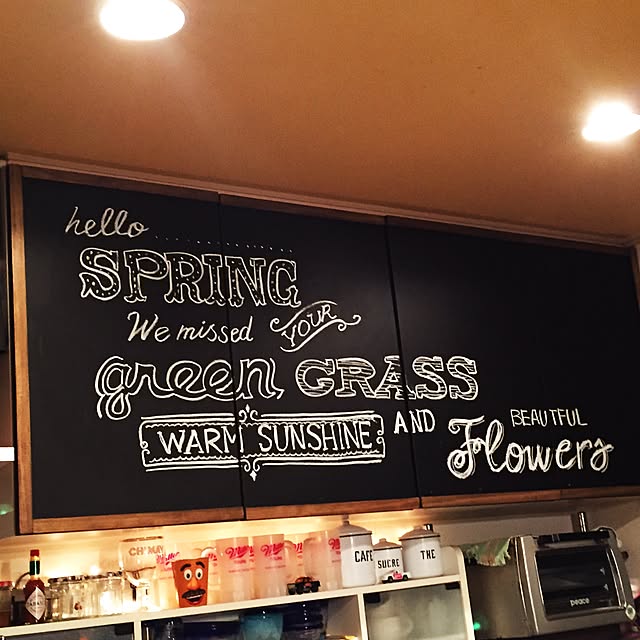 hello
SPRING
We missed YOUR
green GRASS
WARM SUNSHINE AND
BEAUTIFUL
Flowers
CAFE
SUCRE
THE
peace